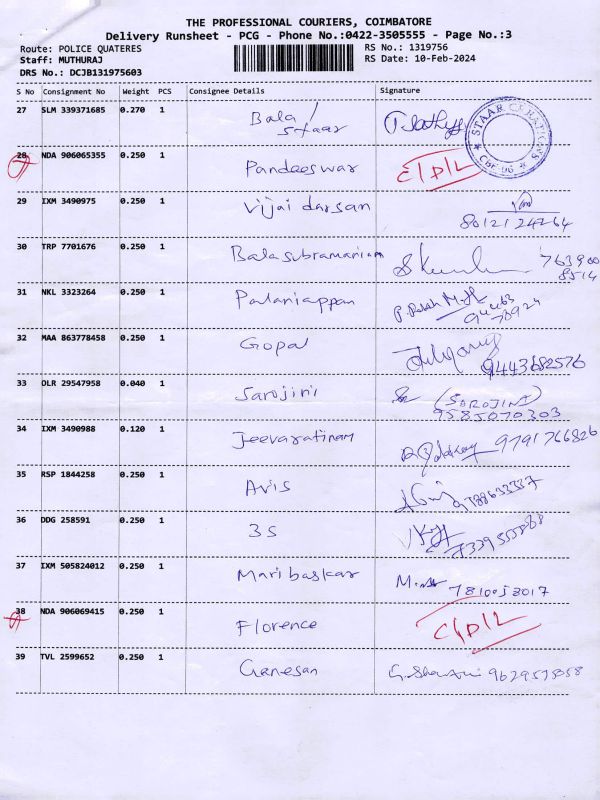 THE PROFESSIONAL COURIERS, COIMBATORE
Delivery Runsheet - PCG - Phone No.:0422-3505555 - Page No.:3
Route: POLICE QUATERES
RS No.: 1319756
Staff: MUTHURAJ
RS Date: 10-Feb-2024
DRS No.: DCJB131975603
S No Consignment No Weight PCS Consignee Details Signature
27 SLM 339371685 0.270 1 Bala / Staar
28 NDA 906065355 0.250 1 Pandeeswar C/D/L
29 IXM 3490975 0.250 1 Vijai darsan 8012124264
30 TRP 7701676 0.250 1 Balasubramaniam 763900
8514
31 NKL 3323264 0.250 1 Palaniappan
32 MAA 863778458 0.250 1 Gopal 9443682576
33 OLR 29547958 0.040 1 Sarojini (SAROJINI)
9585070303
34 IXM 3490988 0.120 1 Jeevaratinam 9791766826
35 RSP 1844258 0.250 1 Avis
36 DDG 258591 0.250 1 3S
37 IXM 505824012 0.250 1 Maribaskar 7810053017
38 NDA 906069415 0.250 1 Florence C/D/L
39 TVL 2599652 0.250 1 Ganesan